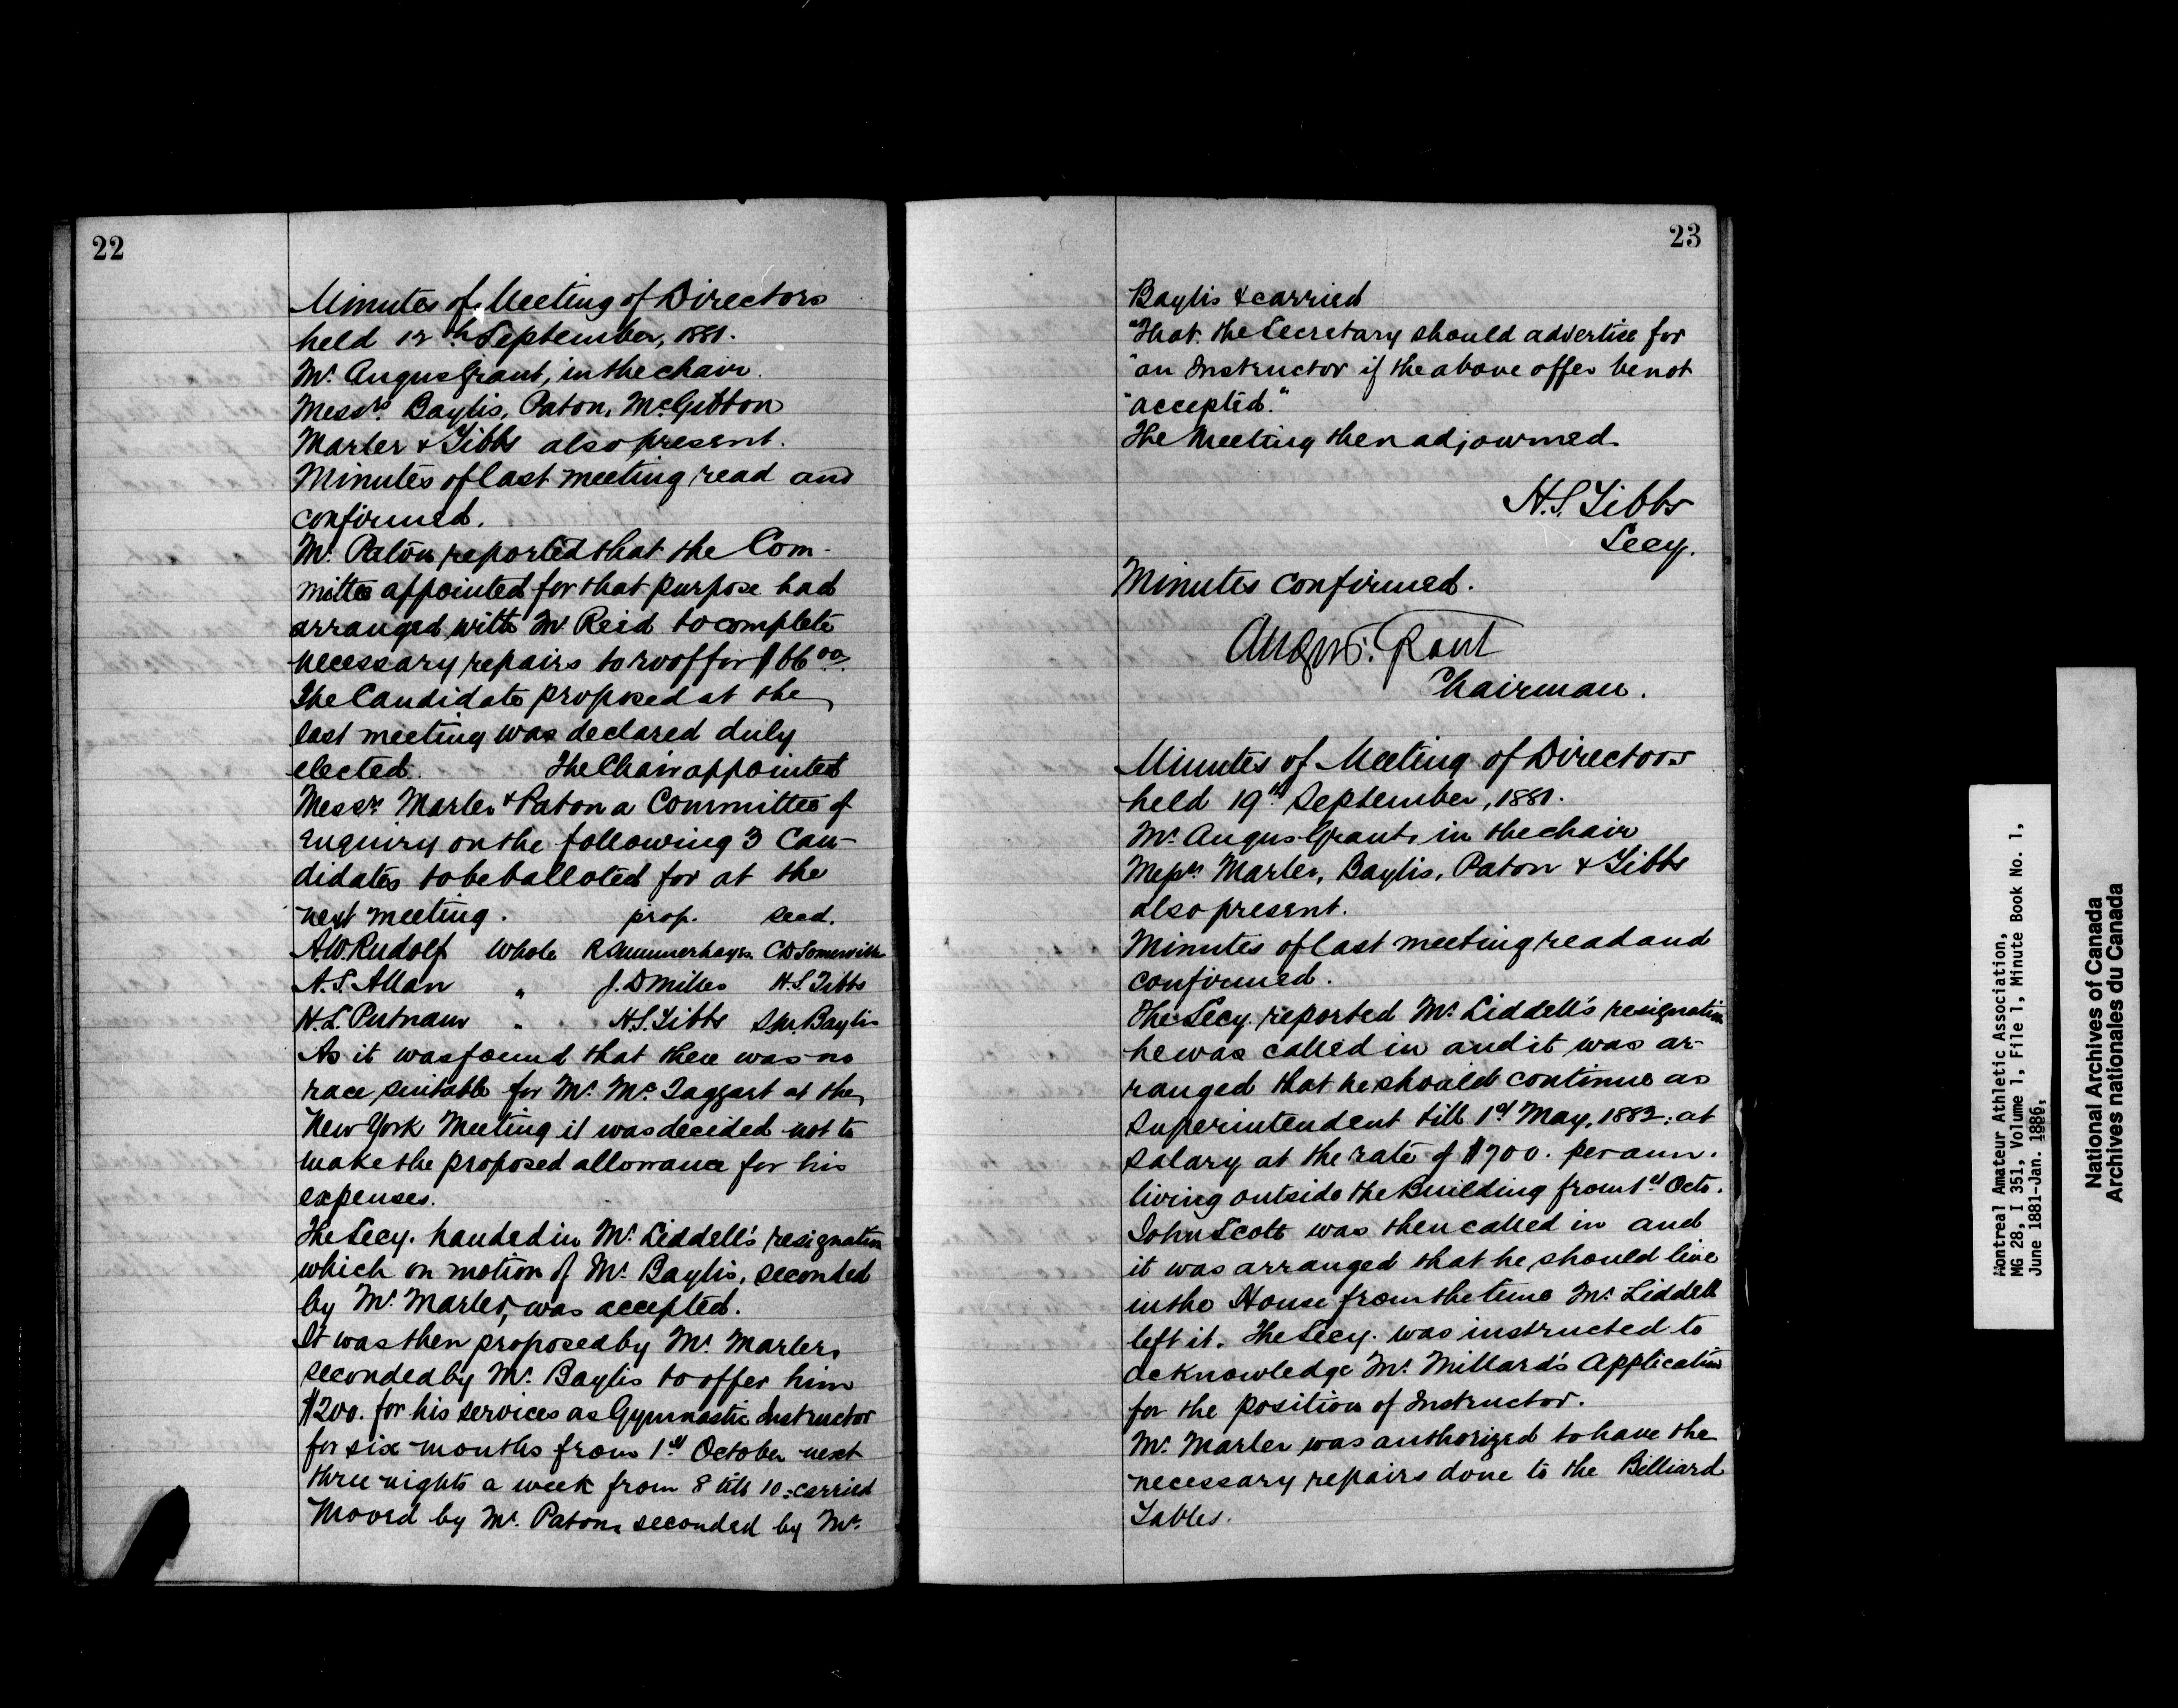 22
Minutes of Meeting of Directors
held 12th September, 1881.
Mr. Angus Grant, in the chair.
Messrs. Baylis, Paton, McGibbon
Marler & Tibbs also present.
Minutes of last meeting read and
confirmed.
Mr. Paton reported that the Com-
mittee appointed for that purpose had
arranged with Mr. Reid to complete
necessary repairs to roof for $66.00
The Candidate proposed at the
last meeting was declared duly
elected. The Chair appointed
Messrs Marler & Paton a Committee of
enquiry on the following 3 Can-
didates to be balloted for at the
next meeting. prop. secd.
A.W. Rudolf Whole R Summerhayes CD Somerville
A.S. Allan " J.D Miller H.S. Tibbs
H.L. Putnam " H.S. Tibbs Baylis
As it was found that there was no
race suitable for Mr. McTaggart at the
New York Meeting it was decided not to
make the proposed allowance for his
expenses.
The Secy. handed in Mr. Liddell's resignation
which on motion of Mr. Baylis, seconded
by Mr. Marler, was accepted.
It was then proposed by Mr. Marler,
seconded by Mr. Baylis to offer him
$200. for his services as Gymnastic Instructor
for six months from 1st October next
three nights a week from 8 till 10: carried
Moved by Mr. Paton, seconded by Mr.
23
Baylis & carried
"That the Secretary should advertise for
"an Instructor if the above offer be not
"accepted."
The Meeting then adjourned.
H.S. Tibbs
Secy.
Minutes confirmed.
Angus Grant
Chairman.
Minutes of Meeting of Directors
held 19th September, 1881.
Mr. Angus Grant, in the chair
Messrs. Marler, Baylis, Paton & Tibbs
also present.
Minutes of last meeting read and
confirmed.
The Secy. reported Mr. Liddell's resignation
he was called in and it was ar-
ranged that he should continue as
Superintendent till 1st May, 1882: at
salary at the rate of $700. per ann.
living outside the Building from 1st Octo.
John Scott was then called in and
it was arranged that he should live
in the House from the time Mr. Liddell
left it. The Secy. was instructed to
acknowledge Mr. Millard's Application
for the position of Instructor.
Mr. Marler was authorized to have the
necessary repairs done to the Billiard
Tables.
Montreal Amateur Athletic Association,
MG 28, I 351, Volume 1, File 1, Minute Book No. 1,
June 1881-Jan. 1886,
National Archives of Canada
Archives nationales du Canada